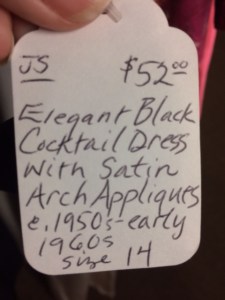 JS $52.00
Elegant Black
Cocktail Dress
with Satin
Arch Appliques
c. 1950s-early
1960s
size 14